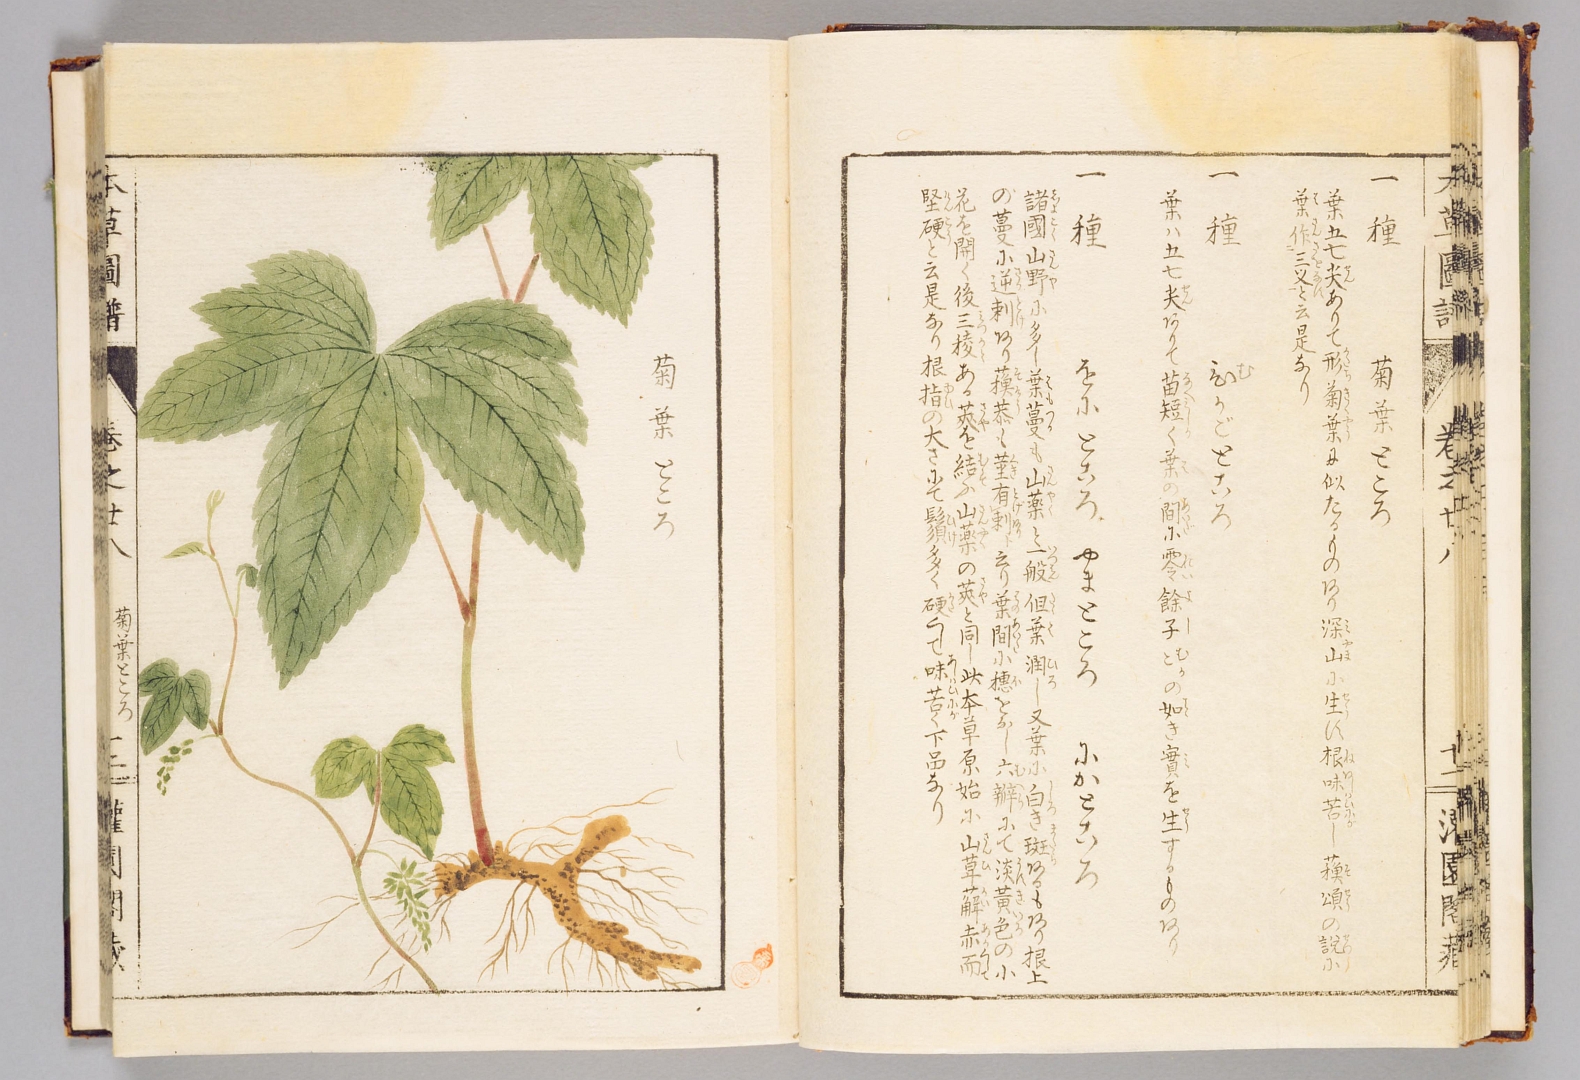 一種 菊葉ところ
葉五七尖ありて形菊葉に似たるものあり深山に生ず根味苦し蘓頌の説に
葉作三叉と云是なり
一種 むかごところ
葉ハ五七尖ありて苗短く葉の間に零餘子の如き實を生ずるものあり
一種 をにところ やまところ にがところ
諸國山野に多し葉蔓も山薬と一般但葉潤し又葉に白き斑あるもあり根上
の蔓に逆刺あり蘓恭も莖有刺と云り葉間に穗をなし六瓣にて淡黄色の小
花を開く後三稜ある莢を結ふ山薬の莢と同し此本草原始に山草薢赤而
堅硬と云是なり根指の大さにて鬚多く硬くて味苦く下品なり
菊葉ところ
本草圖譜 巻之廿八 菊葉ところ